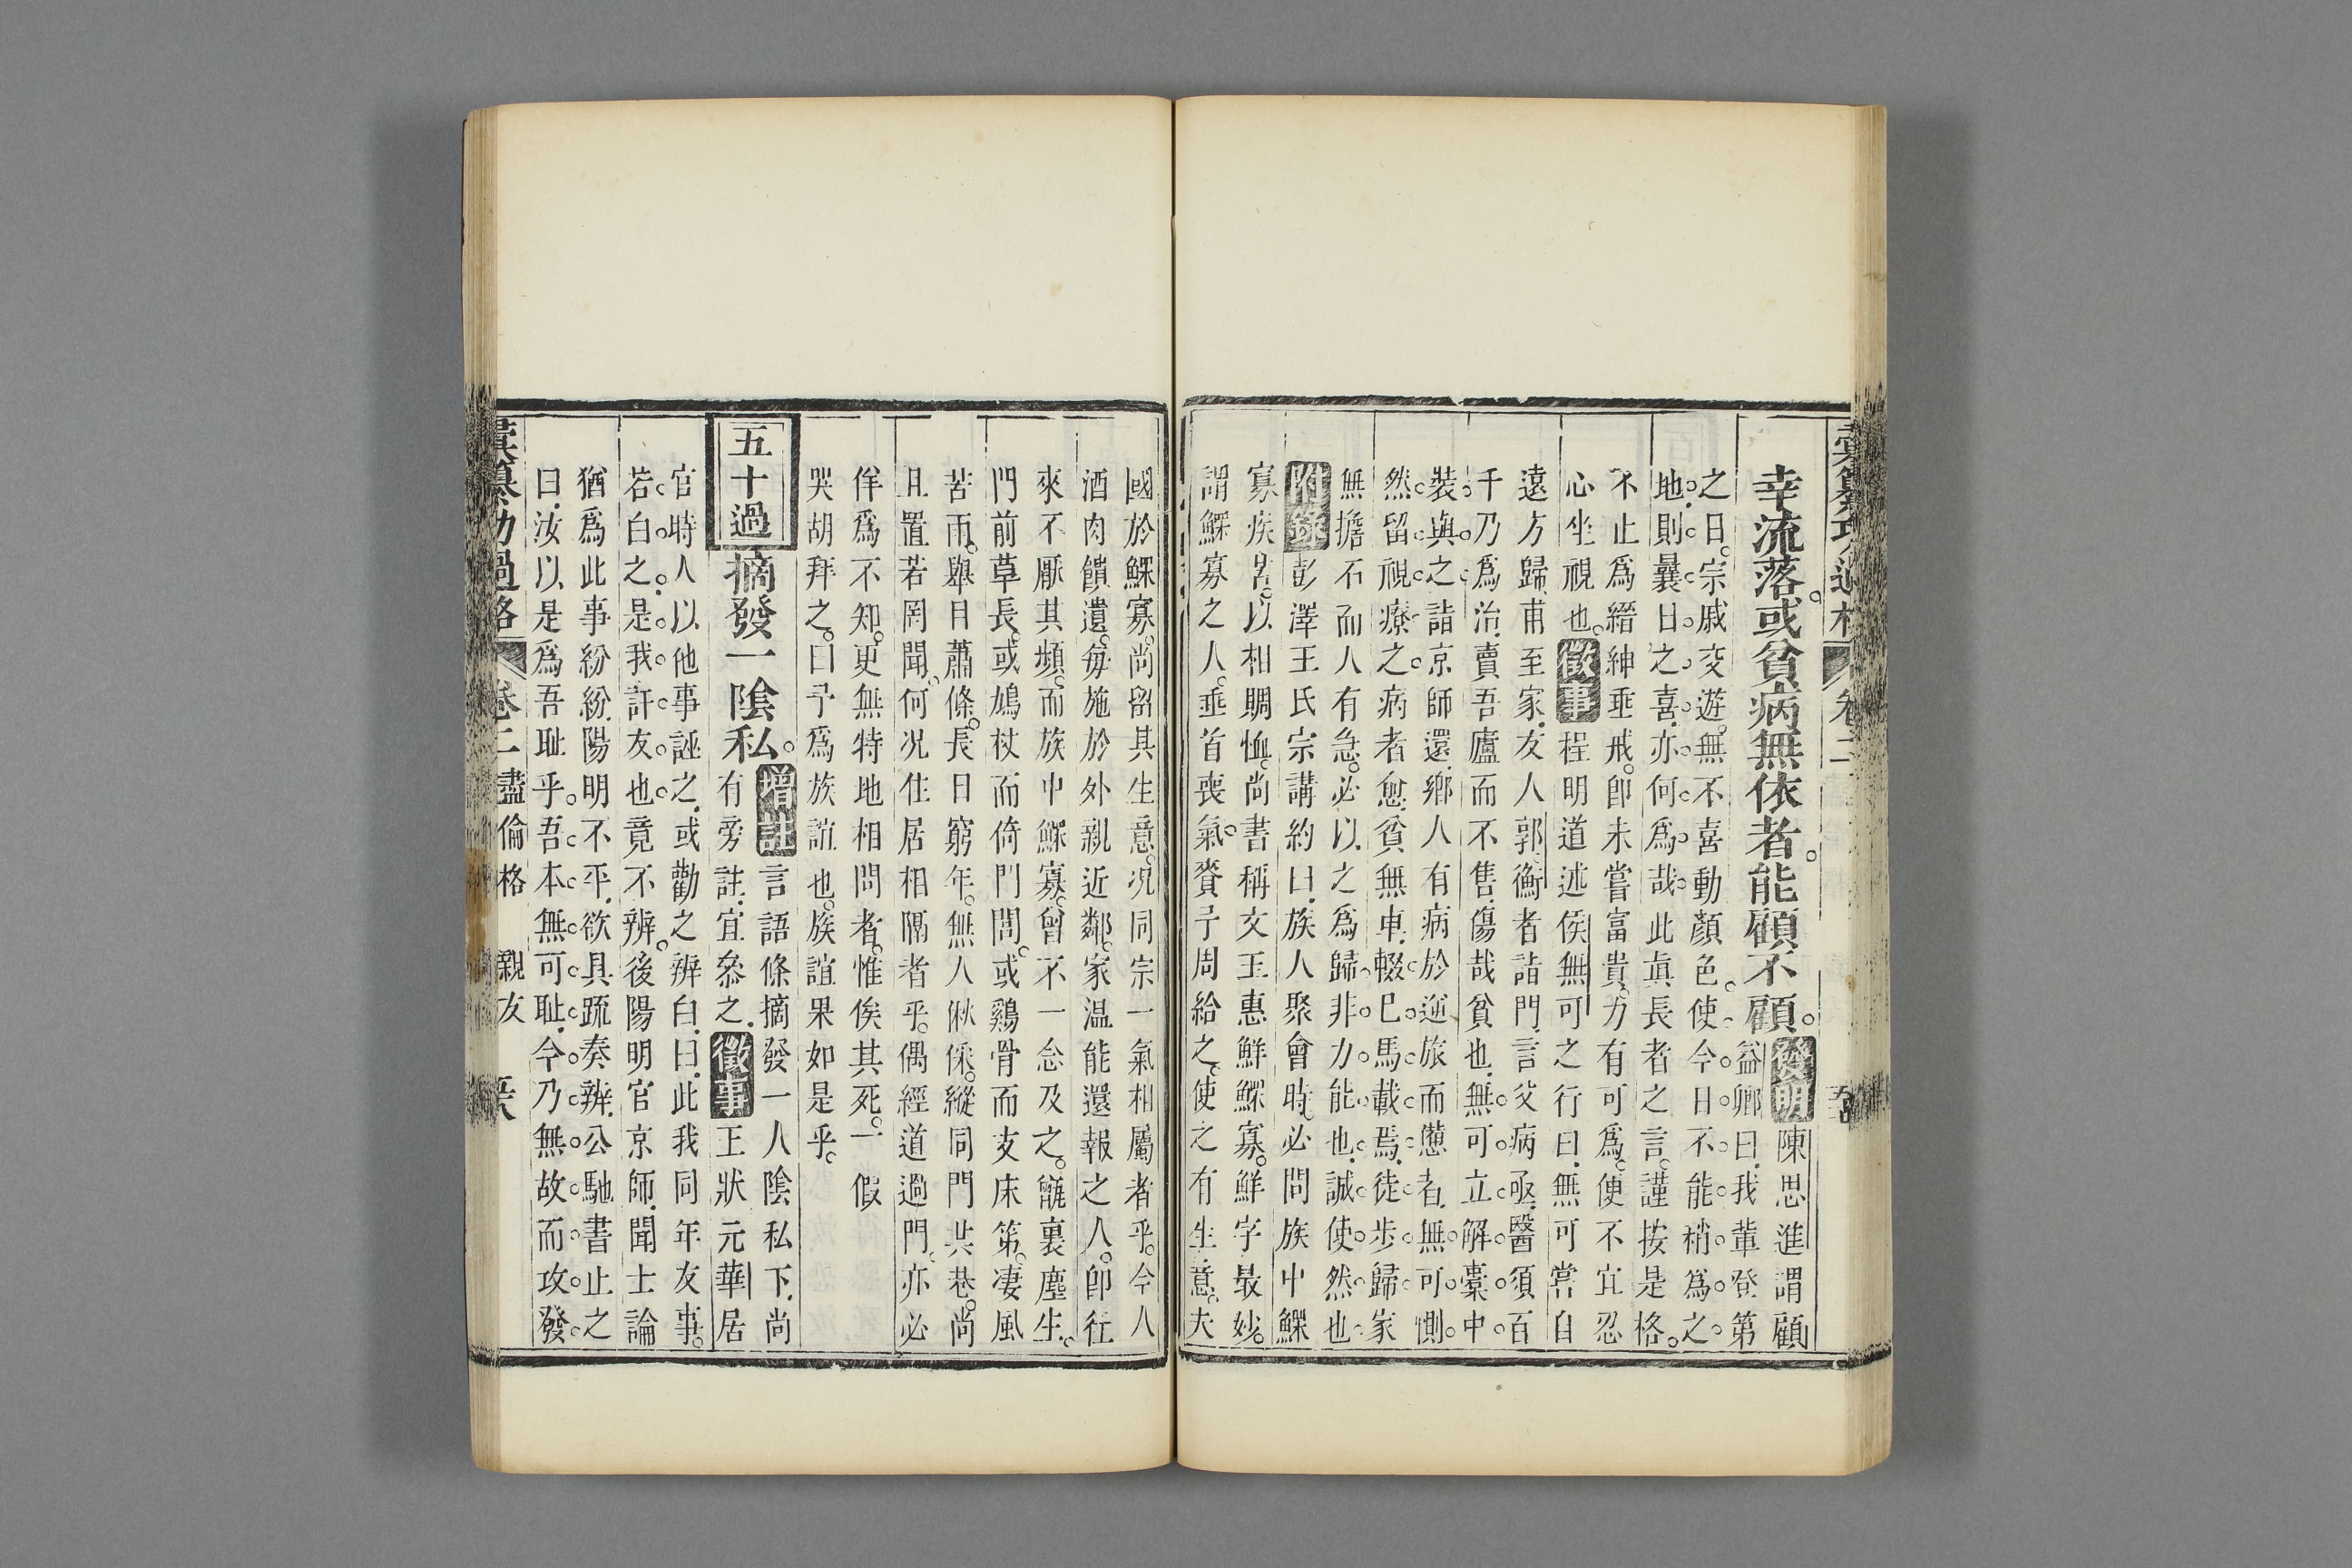 彙纂功過格 卷二
幸流落或貧病無依者能顧不顧 發明 陳思進謂顧
益卿曰我輩登第
之日宗戚交遊無不喜動顏色使今日不能稍為之
地則曩日之喜亦何為哉此真長者之言謹按是格
不止為縉紳垂戒卽未嘗富貴力有可為便不宜忍
心坐視也 徵事 程明道述侯無可之行曰無可嘗自
遠方歸甫至家友人郭衡者詣門言父病亟醫須百
千乃為治賣吾廬而不售傷哉貧也無可立解橐中
裝與之詣京師還鄉人有病於逆旅而憊者無可惻
然留視療之病者愈貧無車輟己馬載焉徒步歸家
無擔石而人有急必以之為歸非力能也誠使然也
附錄 彭澤王氏宗講約曰族人聚會時必問族中鰥
寡疾苦以相賙恤尚書稱文王惠鮮鰥寡鮮字最妙
謂鰥寡之人垂首喪氣賚予周給之使之有生意夫
國於鰥寡尚留其生意况同宗一氣相屬者乎今人
酒肉饋遺每施於外親近鄰家温能還報之人卽往
來不厭其頻而族中鰥寡曾不一念及之甑裏塵生
門前草長或鳩杖而倚門閭或鷄骨而支床第凄風
苦雨舉目蕭條長日窮年無人偢倸縱同門共巷尚
且置若罔聞何况住居相隔者乎偶經道過門亦必
佯爲不知更無特地相問者惟俟其死一假
哭胡拜之曰予爲族誼也族誼果如是乎
五十過 摘發一陰私 增註 言語條摘發一人陰私下尚
有旁註宜叅之 徵事 王狀元華居
官時人以他事誣之或勸之辨白曰此我同年友事
若白之是我訐友也竟不辨後陽明官京師聞士論
猶爲此事紛紛陽明不平欲具疏奏辨公馳書止之
曰汝以是爲吾耻乎吾本無可耻今乃無故而攻發
彙纂功過格 卷二 盡倫格 親友 五六